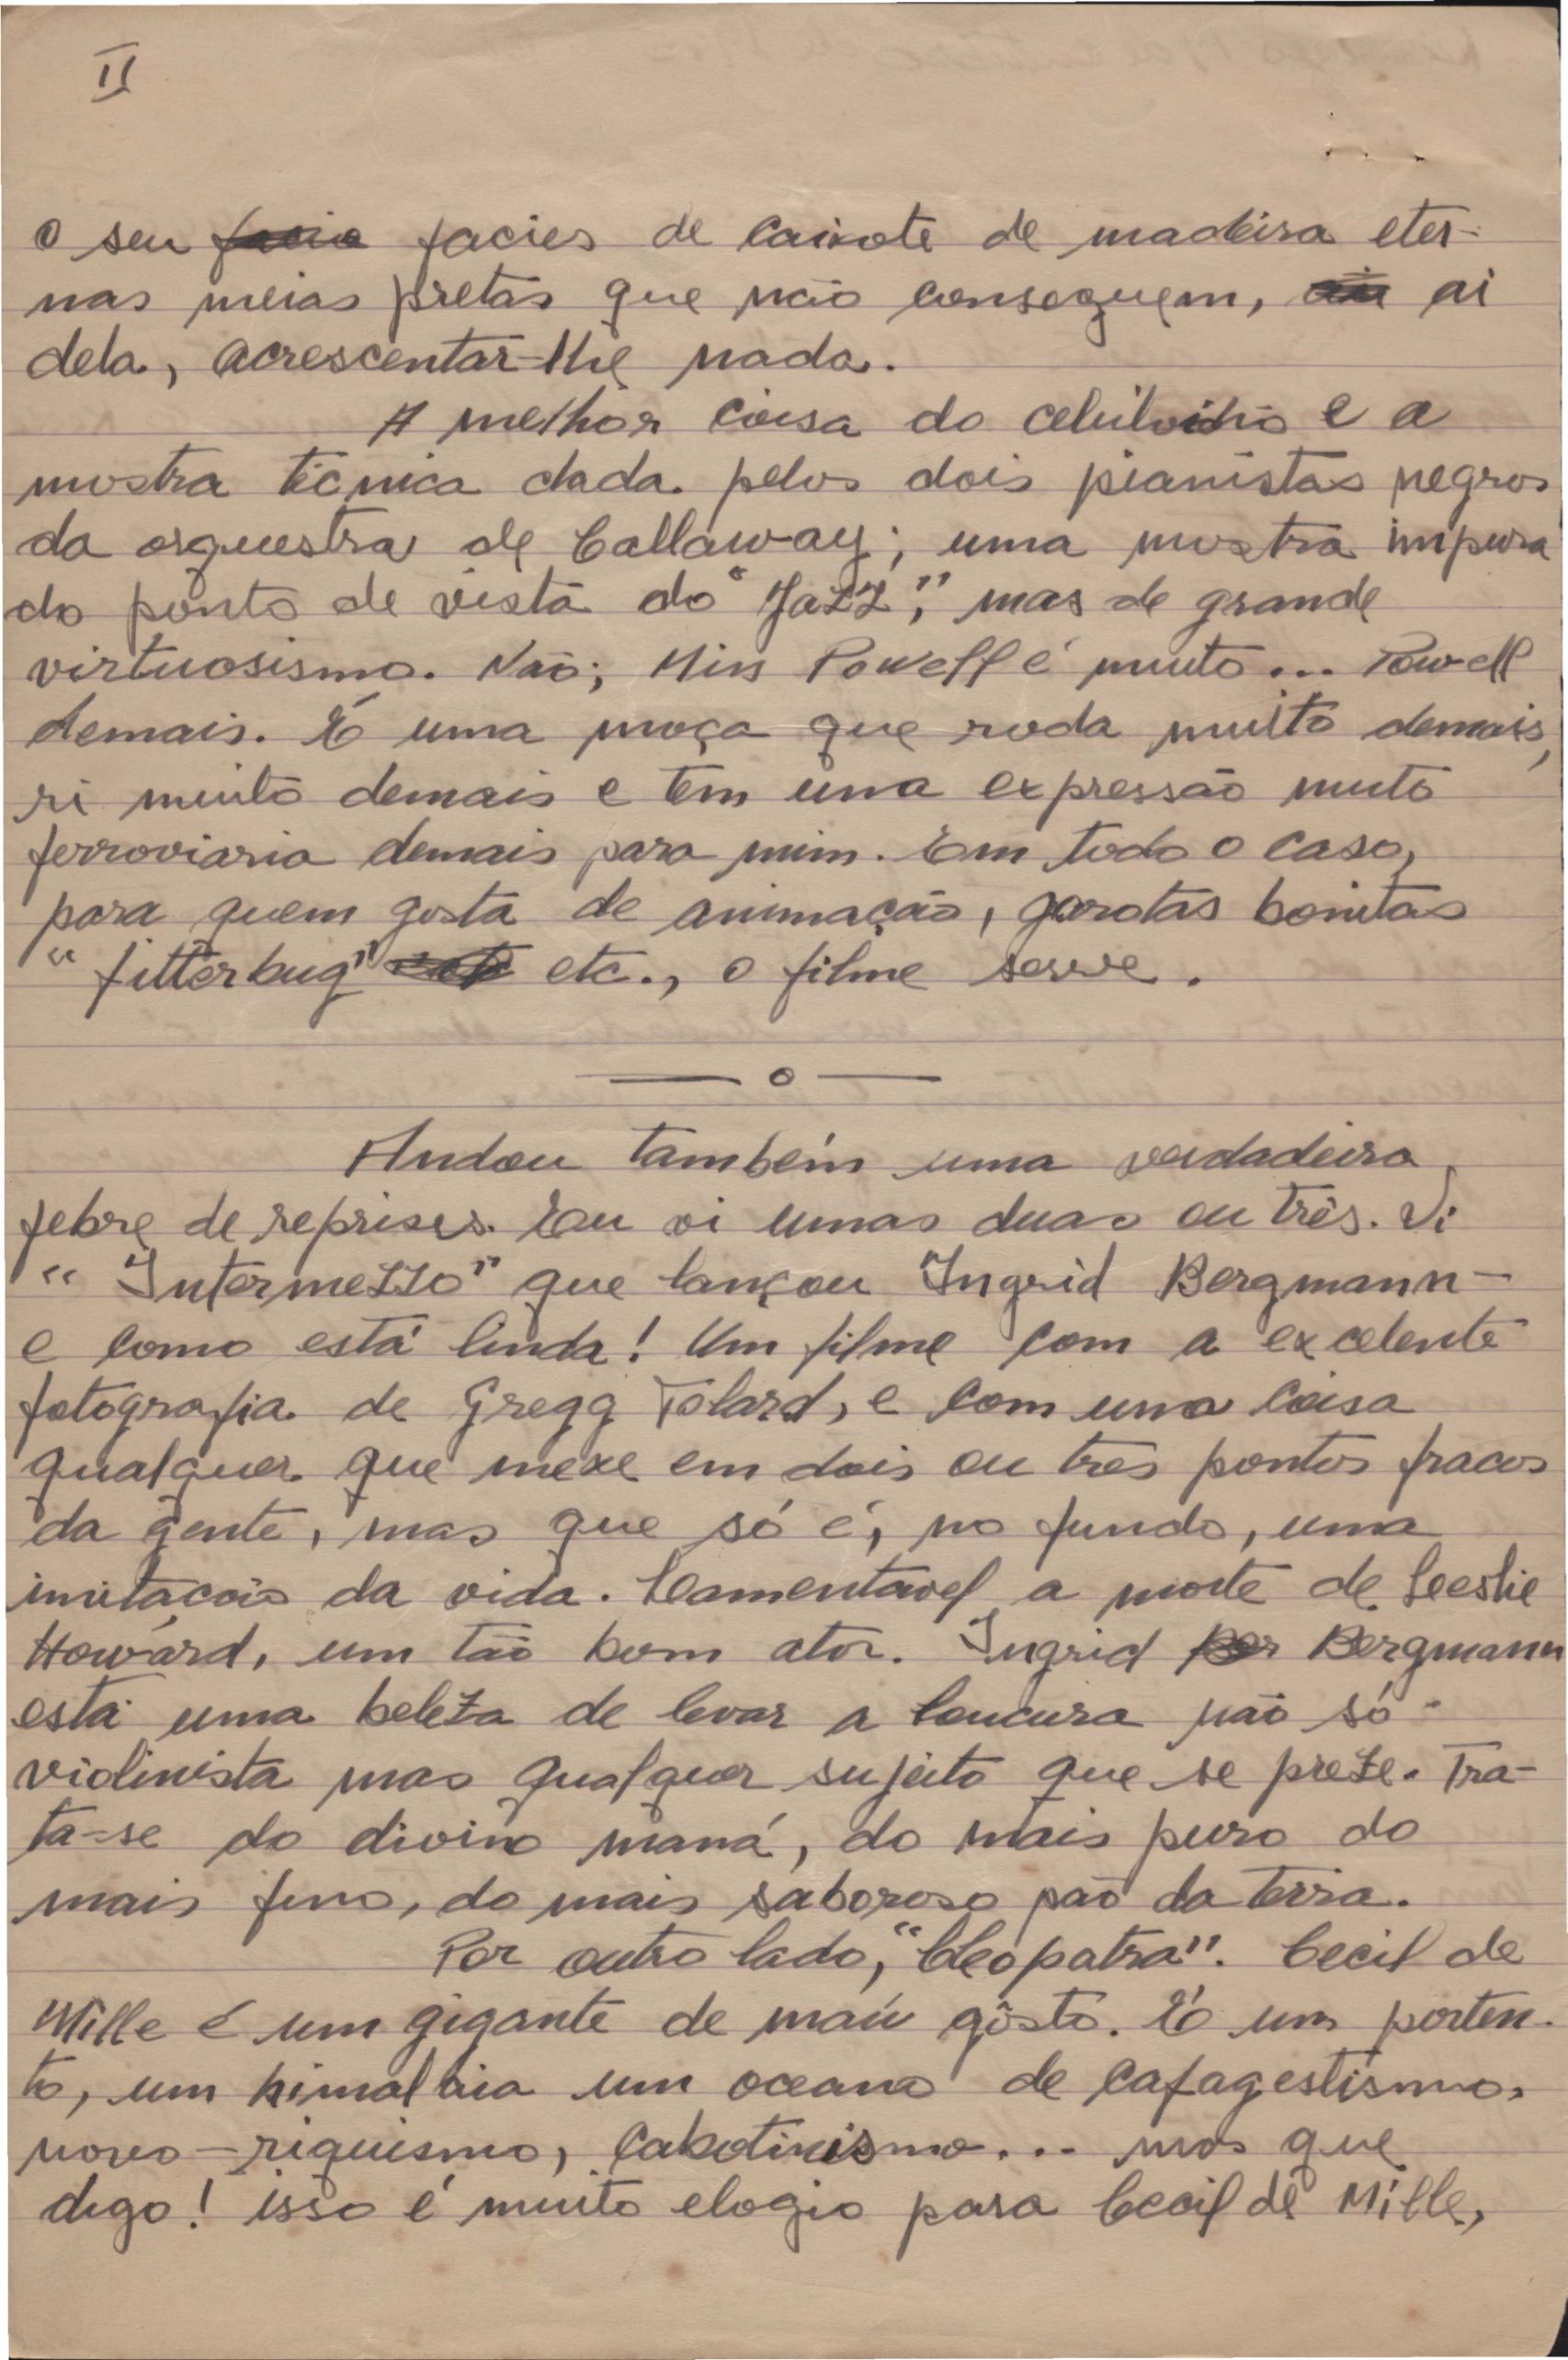 II
o seu facies de caixote de madeira eter-
nas meias pretas que não conseguem, ai
dela, acrescentar-lhe nada.
A melhor coisa do celuloidio e a
mostra técnica dada pelos dois pianistas negros
da orquestra de Callaway; uma mostra impura
do ponto de vista do "Jazz", mas de grande
virtuosismo. Não; Miss Powell é muito... Powell
demais. É uma moça que roda muito demais,
ri muito demais e tem uma expressão muito
ferroviaria demais para mim. Em todo o caso,
para quem gosta de animação, garotas bonitas
"jitterbug" etc., o filme serve.
— o —
Andou também uma verdadeira
febre de reprises. Eu vi umas duas ou três. Vi
"Intermezzo" que lançou Ingrid Bergmann —
e como está linda! Um filme com a excelente
fotografia de Gregg Tolard, e com uma coisa
qualquer que mexe em dois ou tres pontos fracos
da gente, mas que só é, no fundo, uma
imitação da vida. Lamentavel a morte de Leeslie
Howard, um tão bom ator. Ingrid Bergmann
está uma beleza de levar a loucura não só
violinista mas qualquer sujeito que se preze. Tra-
ta-se do divino maná, do mais puro do
mais fino, do mais saboroso pão da terra.
Por outro lado, "Cleopatra". Cecil de
Mille é um gigante de mau gôsto. É um porten-
to, um himalaia um oceano de cafagestismo,
novo-riquismo, cabotinismo... mas que
digo! isso é muito elogio para Cecil de Mille,